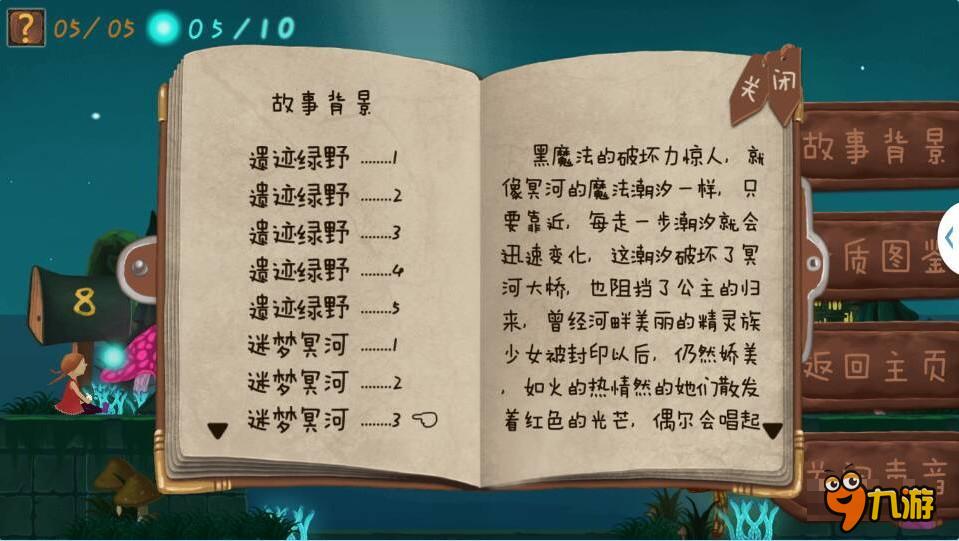 ? 05/05 05/10
故事背景
遗迹绿野 ........1
遗迹绿野 ........2
遗迹绿野 ........3
遗迹绿野 ........4
遗迹绿野 ........5
迷梦冥河 ........1
迷梦冥河 ........2
迷梦冥河 ........3
关闭
黑魔法的破坏力惊人，就
像冥河的魔法潮汐一样，只
要靠近，每走一步潮汐就会
迅速变化，这潮汐破坏了冥
河大桥，也阻挡了公主的归
来，曾经河畔美丽的精灵族
少女被封印以后，仍然娇美
，如火的热情然的她们散发
着红色的光芒，偶尔会唱起
故事背景
质图鉴
返回主页
声音
8
九游